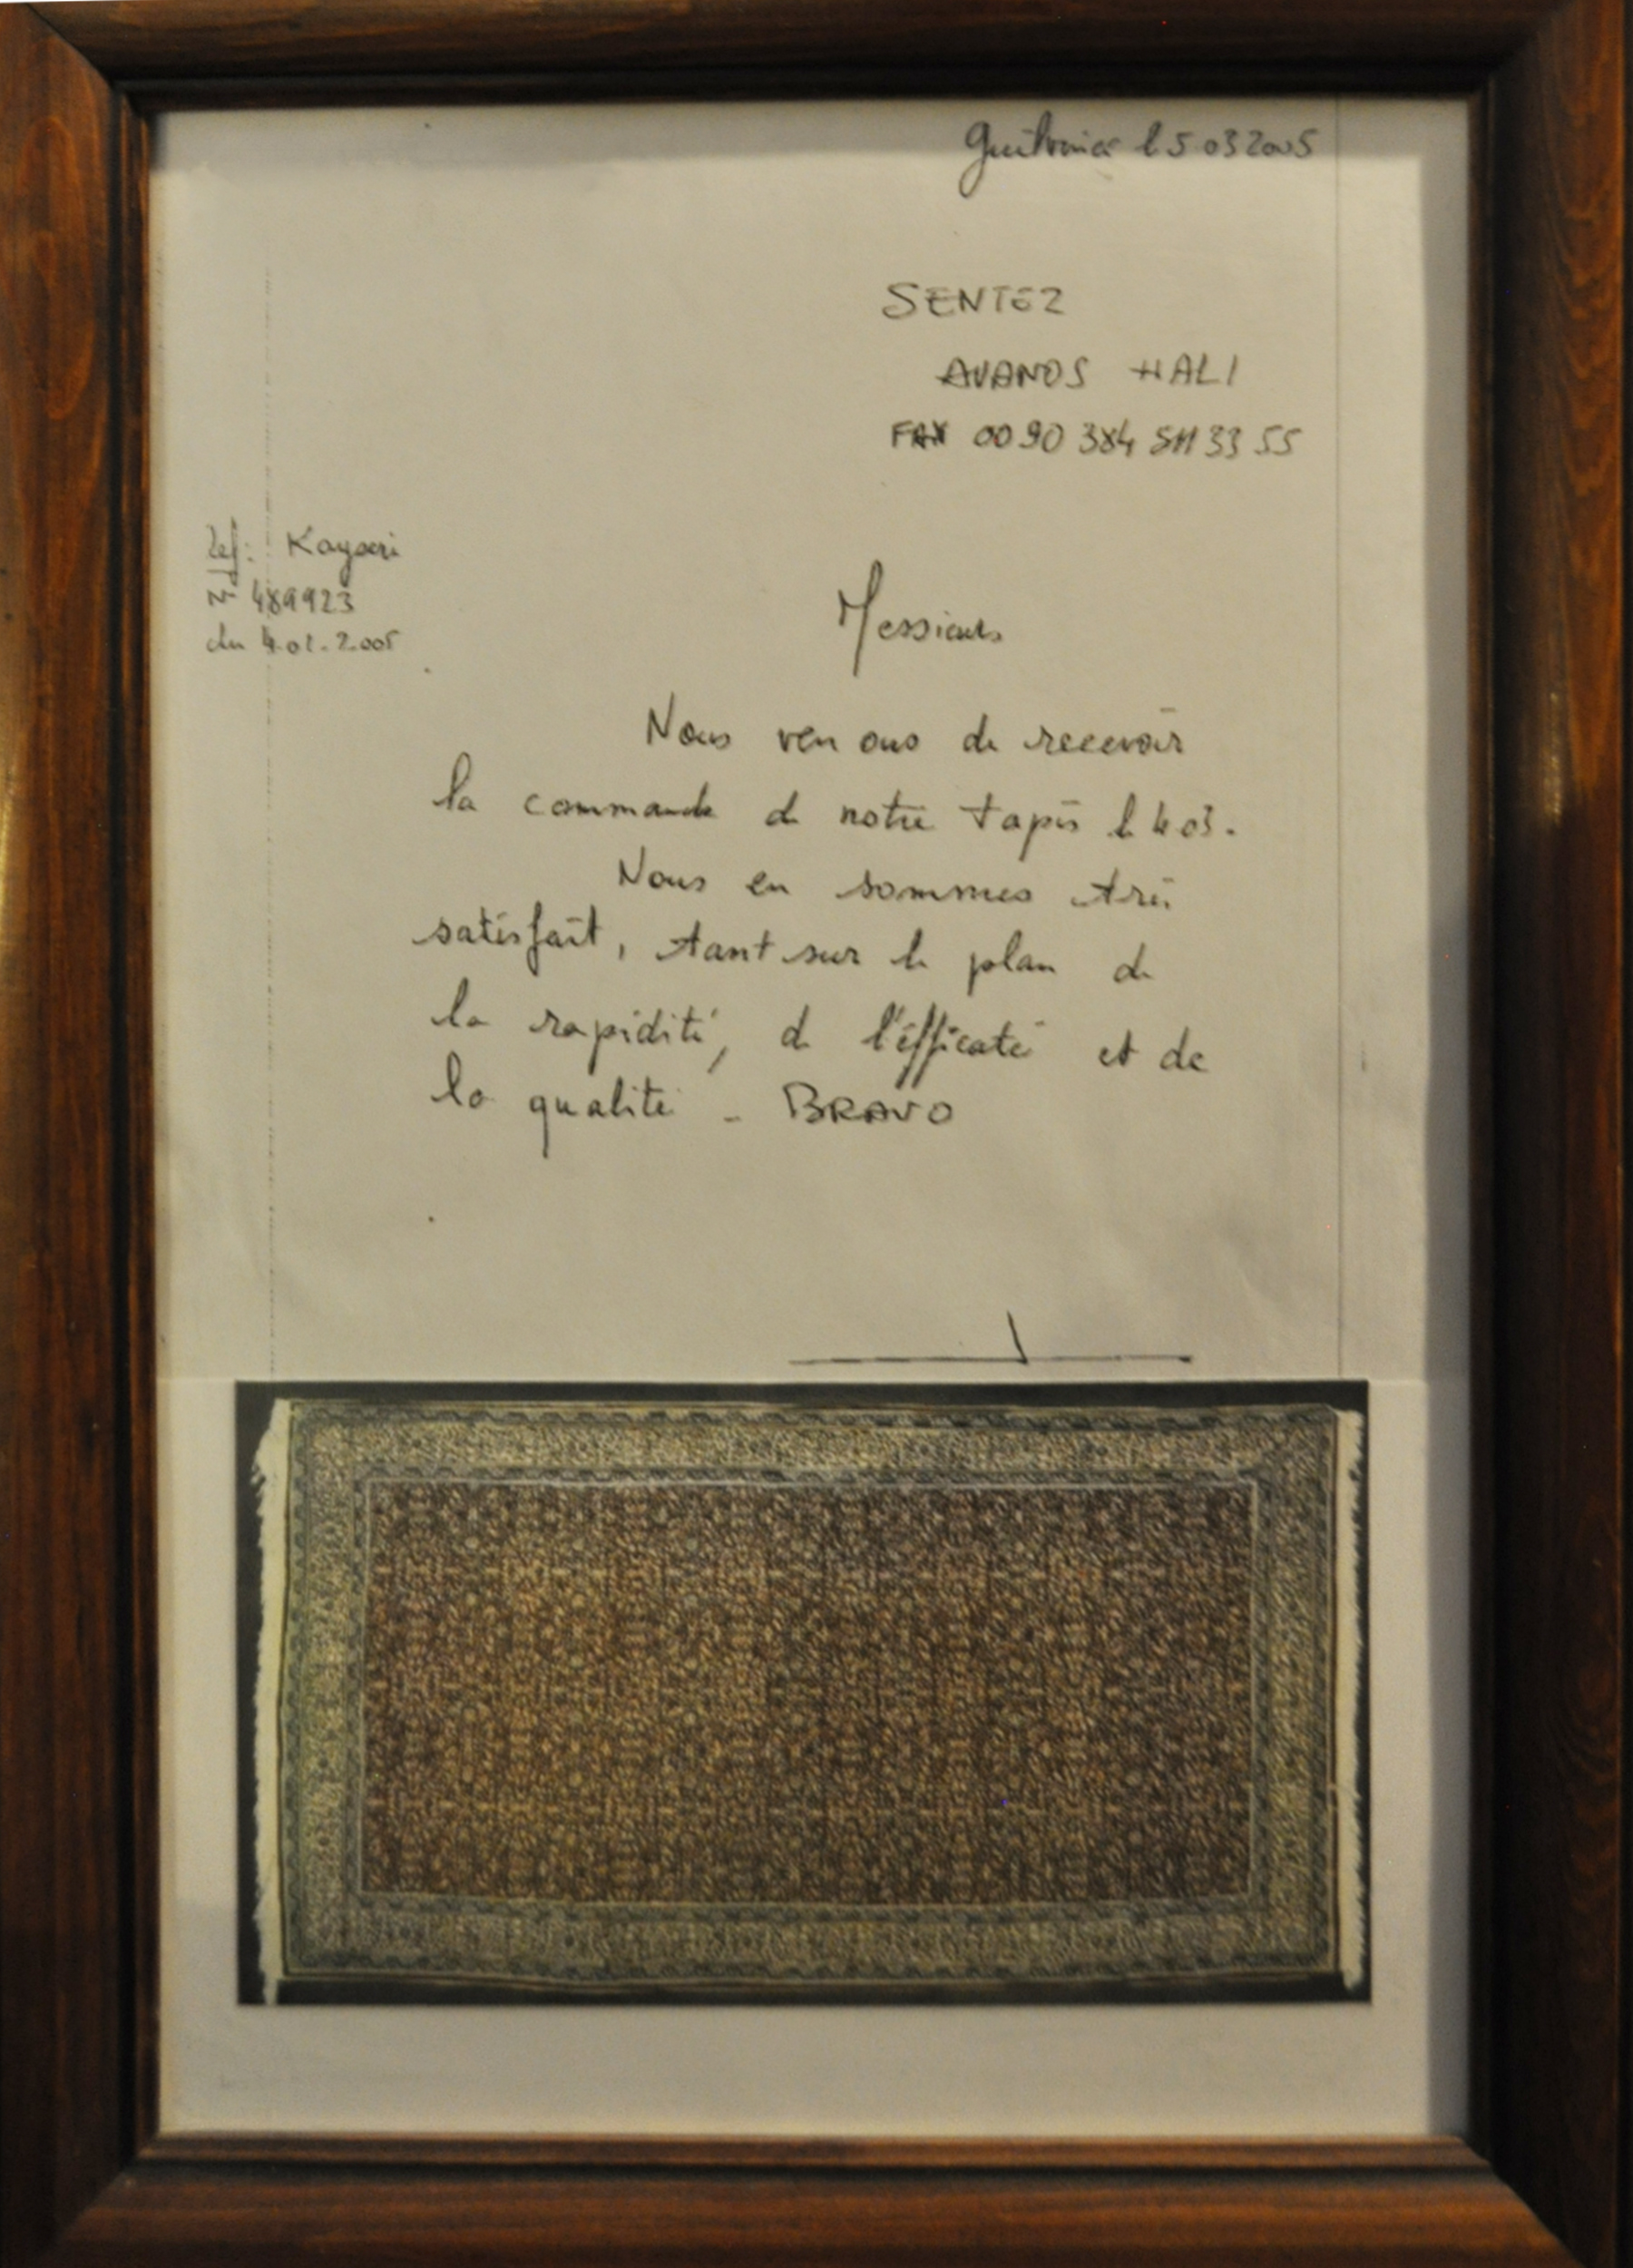 Guilvinec le 5 03 2005
SENTEZ
AVANOS HALI
FAX 00 90 384 511 33 55
Ref: Kayseri
N° 489923
du 4.01.2005
Messieurs
Nous venons de recevoir
la commande de notre tapis le 4 03.
Nous en sommes très
satisfait, tant sur le plan de
la rapidité, de l'éfficaté et de
la qualité - BRAVO